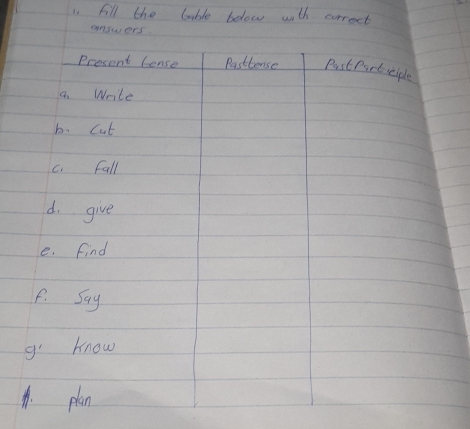 1. Fill the table below with correct
answers.
Present tense Past tense Past Participle
a. Write
b. Cut
c. Fall
d. give
e. find
f. Say
g. know
h. plan